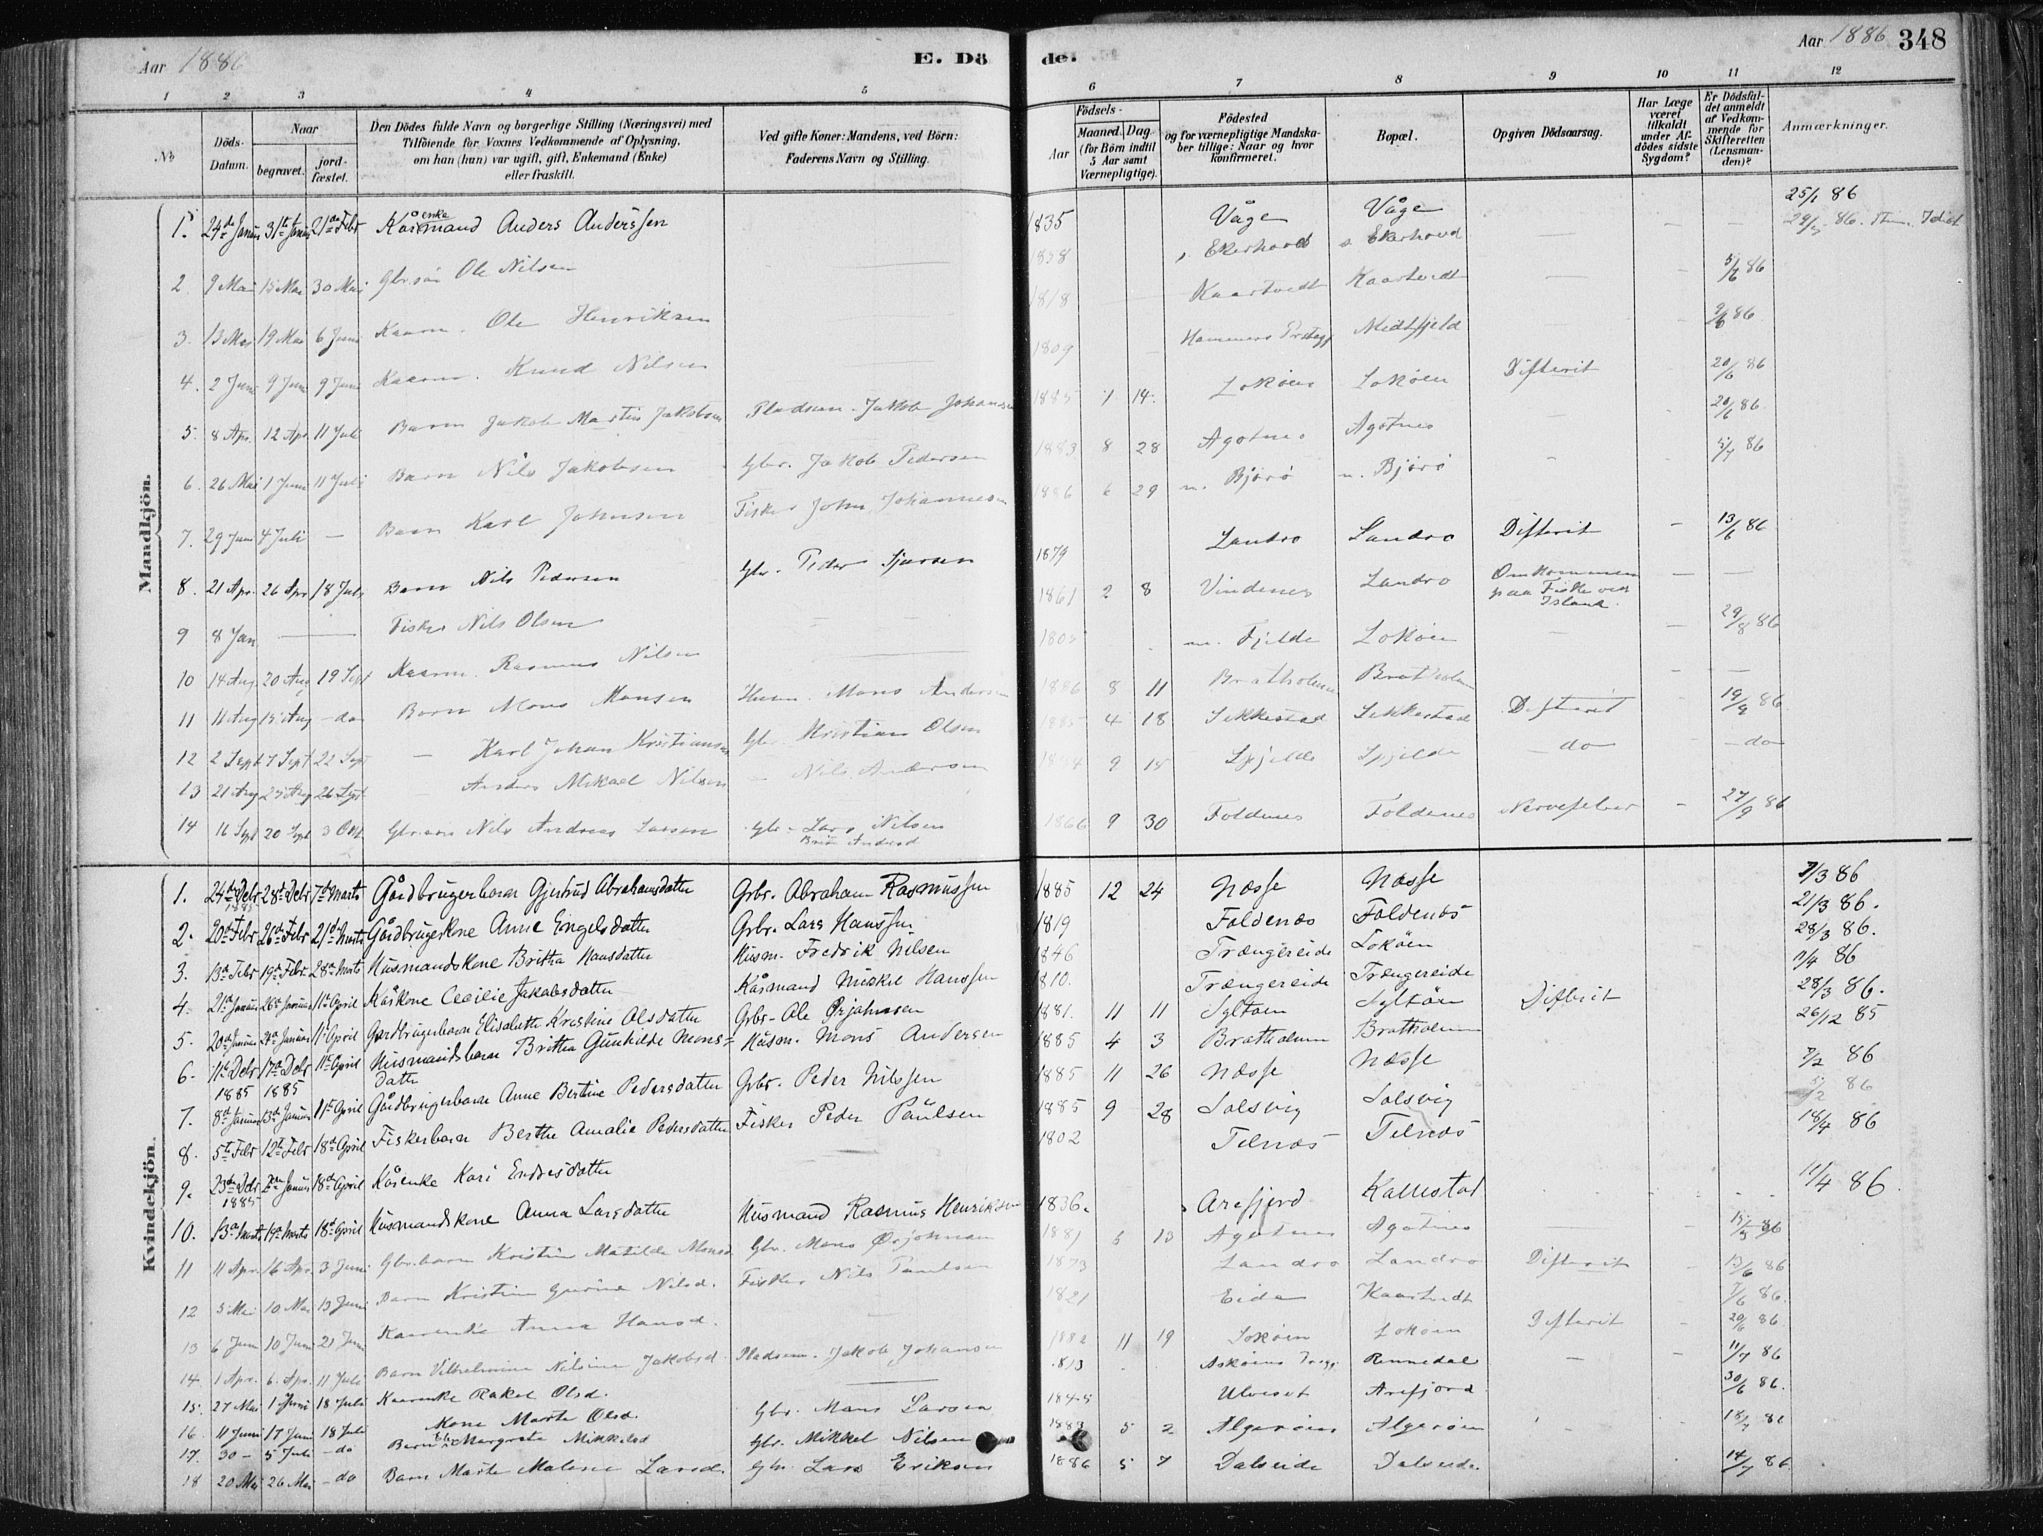 Aar 1886
E. Döde.
Aar 1886 348
1 2 3 4 5 6 7 8 9 10 11 12
No
Döds-Datum.
Naar
begravet.
jord-fæstet.
Den Dödes fulde Navn og borgerlige Stilling (Næringsvei) med
Tilföiende for Voxnes Vedkommende af Oplysning,
om han (hun) var ugift, gift, Enkemand (Enke)
eller fraskilt.
Ved gifte Koner: Mandens, ved Börn:
Faderens Navn og Stilling.
Födsels-
Aar
Maaned. Dag.
(for Börn indtil
5 Aar samt
Værnepligtige).
Födested
og for værnepligtige Mandska-
ber tillige: Naar og hvor
konfirmeret.
Bopæl.
Opgiven Dödsaarsag.
Har Læge
været
tilkaldt
under Af-
dödes sidste
Sygdom?
Er Dödsfal-
det anmeldt
af Vedkom-
mende for
Skifteretten
(Lensman-
den)?
Anmærkninger.
Mandkjön.
1. 24de Januar 31te Januar 21de Febr Kårmand enke Anders Anderssen 1835 Våge Våge 25/1 86
2. 9 Mai 15 Mai 30 Mai Gbr.søn Ole Nilsen 1838 Ekerhovd Ekerhovd
3. 13 Mai 19 Mai 6 Juni Kaarm. Ole Henriksen 1818 Kaartvedt Kaartvedt 5/6 86
4. 2 Juni 9 Juni 9 Juni Kaarm. Knud Nilsen 1809 Hammers Prstegj Midtfjeld 9/6 86
5. 8 Apr. 12 Apr. 11 Juli Barn Jakob Martin Jakobsen Pladsm. Jakob Johansen 1885 1 14. Lokøen Lokøen Difterit 20/6 86
6. 26 Mai 1 Juni 11 Juli Barn Nils Jakobsen Gbr. Jakob Pedersen 1883 8 28 Agotnes Agotnes 20/6 86.
7. 29 Juni 4 Juli — Barn Karl Johnsen Fisker John Johannesen 1886 6 29 n. Bjørø n. Bjørø 5/7 86
8. 21 Apr. 26 Apr 18 Juli Barn Nils Pedersen Gbr. Peder Sjursen 1879 Landro Landro Difterit 13/6 86
9 8 Jan — — Fisker Nils Olsen 1861 2 8 Vindenes Landro Omkommen
paa Fiske ved
Island.
10 14 Aug 20 Aug 19 Sept Kaarm. Rasmus Nilsen n. Fjelde Lokøen 29/8 86
11 11 Aug 15 Aug - do Barn Mons Monsen Husm. Mons Andersen 1886 8 11 Bratholmen Bratholm
12 2 Sept 7 Sept 22 Sept — Karl Johan Kristiansen Gbr. Kristian Olsen 1885 4 18 Sekkestad Sekkestad Difterit 19/9 86
13 21 Aug 25 Aug 26 Sept — Anders Mikael Nilsen — Nils Andersen 9 15 Spjelde Spjelde — do — do
14 16 Sept 20 Sept 3 Okt. Gbr.søn Nils Andreas Larsen Gbr. Lars Nilsen 1866 9 30 Foldenes Foldenes Nervefeber 27/9 86
Kvindekjön.
1. 24de Debr 1885 28de Debr 7de Marts Gårdbrugerbarn Gjertrud Abrahamsdatter Grbr. Abraham Rasmussen 1885 12 24 Næsse Næsse 7/3 86
2. 20de Febr 26de Febr 21de Marts Gårdbrugerkone Anne Engelsdatter Grbr. Lars Hanssen 1819 Foldenæs Foldenæs 21/3 86.
3. 13de Febr 19de Febr 28de Marts Husmandskone Britha Hansdatter Husm. Fredrik Nilsen 1846 Trængereide Lokøen 28/3 86.
4. 21de Januar 26de Januar 11te April Kårkone Cecilie Jakobsdatter Kårmand Mikkel Hanssen 1810. Trængereide Trængereide 11/4 86
5. 20de Januar 24de Januar 11te April Gårdbrugerbarn Elisabeth Kristine Olsdatter Grbr. Ole Ørjansen 1881. 11 11 Syltøen Syltøen Difterit 28/3 86.
6. 11te Debr 1885 17de Debr 1885 11te April Husmandsbarn Britha Gunhilde Mons-
datter Husm. Mons Andersen 1885 4 3 Bratholmen Bratholmen 26/12 85
7. 8de Januar 13de Januar 11te April Gårdbrugerbarn Anne Bertine Pedersdatter Grbr. Peder Nilssen 1885 11 26 Næsse Næsse 7/2 86
8. 5te Febr 12te Febr 18de April Fiskerbarn Berthe Amalie Pedersdatter Fisker Peder Paulsen 1885 9 28 Solsvig Solsvig 5/2 86
9. 23de Debr 1885 2den Januar 18de April Kårenke Kari Endresdatter 1802 Telnæs Telnæs 18/4 86
10. 13de Marts 19de Marts 18de April Husmandskone Anna Larsdatter Husmand Rasmus Henriksen 1836. Arefjord Kallestad 11/4 86.
11 11 Apr. 16 Apr. 3 Juni Gbr.barn Kristine Matilde Monsd. Gbr. Mons Ørjohnsen 1881 6 13 Agotnes Agotnes
12 5 Mai 10 Mai 13 Juni Barn Kristine Gurine Nilsd. Fisker Nils Paulsen 1873 Landro Landro Difterit 13/6 86
13 6 Juni 10 Juni 21 Juni Kaarenke Anna Hansd. 1821 Eide Kaartvedt 7/6 86.
14. 1 Apr. 6. Apr. 11 Juli Barn Vilhelmine Nilsine Jakobsd. Pladsm. Jakob Johansen 1882 11 19 Lokøen Lokøen Difterit 20/6 86
15. 27 Mai 1 Juni 18 Juli Kaarenke Rakel Olsd. 1813 Askøens Prgj. Rennedal 11/7 86
16. 11 Juni 17 Juni 18 Juli Kone Marta Olsd. Gbr. Mons Larsen 1845 Ulveset Arefjord 30/6 86.
17. 30 — 5 Juli - do Barn Margrete Mikkelsd Gbr. Mikkel Nilsen 1883 5 2 Algerøen Algerøen 18/7 86
18 20 Mai 26 Mai - do Barn Marta Malene Larsd. Gbr. Lars Eriksen 1886 5 7 Dalseide Dalseide. 14/7 86